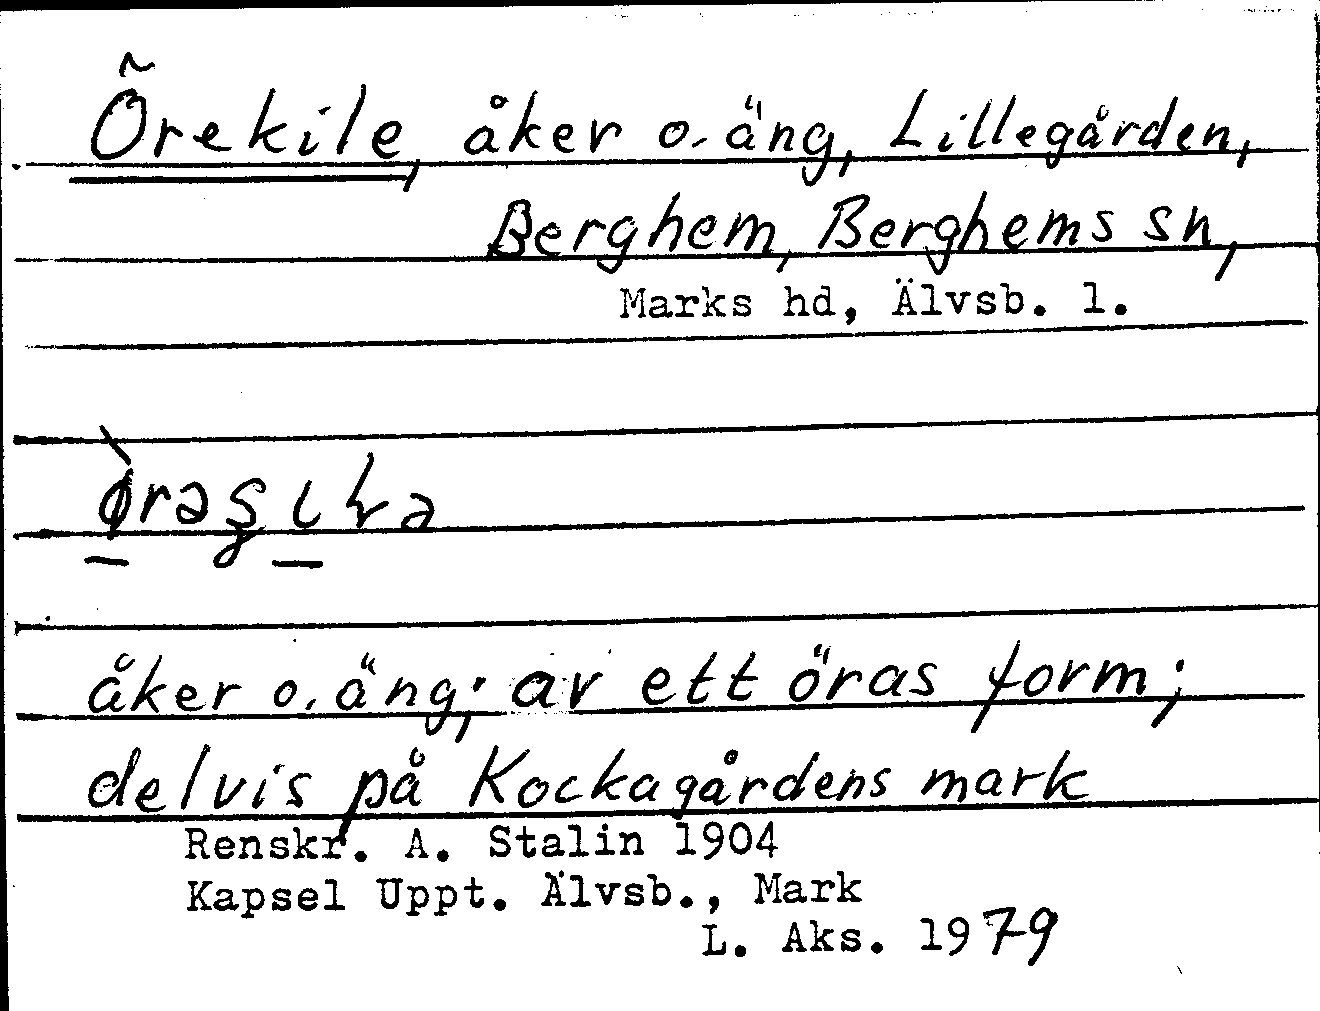 Örekile, åker o. äng, Lillegården,
Berghem, Berghems sn,
Marks hd, Älvsb. l.
åker o. äng; av ett öras form;
delvis på Kockagårdens mark
Renskr. A. Stalin 1904
Kapsel Uppt. Älvsb., Mark
L. Aks. 1979